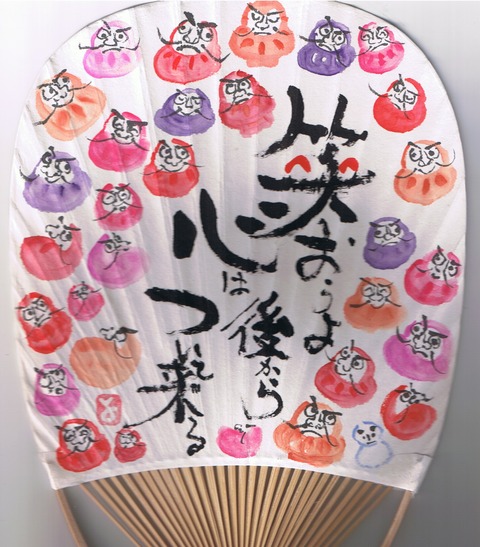 笑おうよ
心は後から
ついて来る